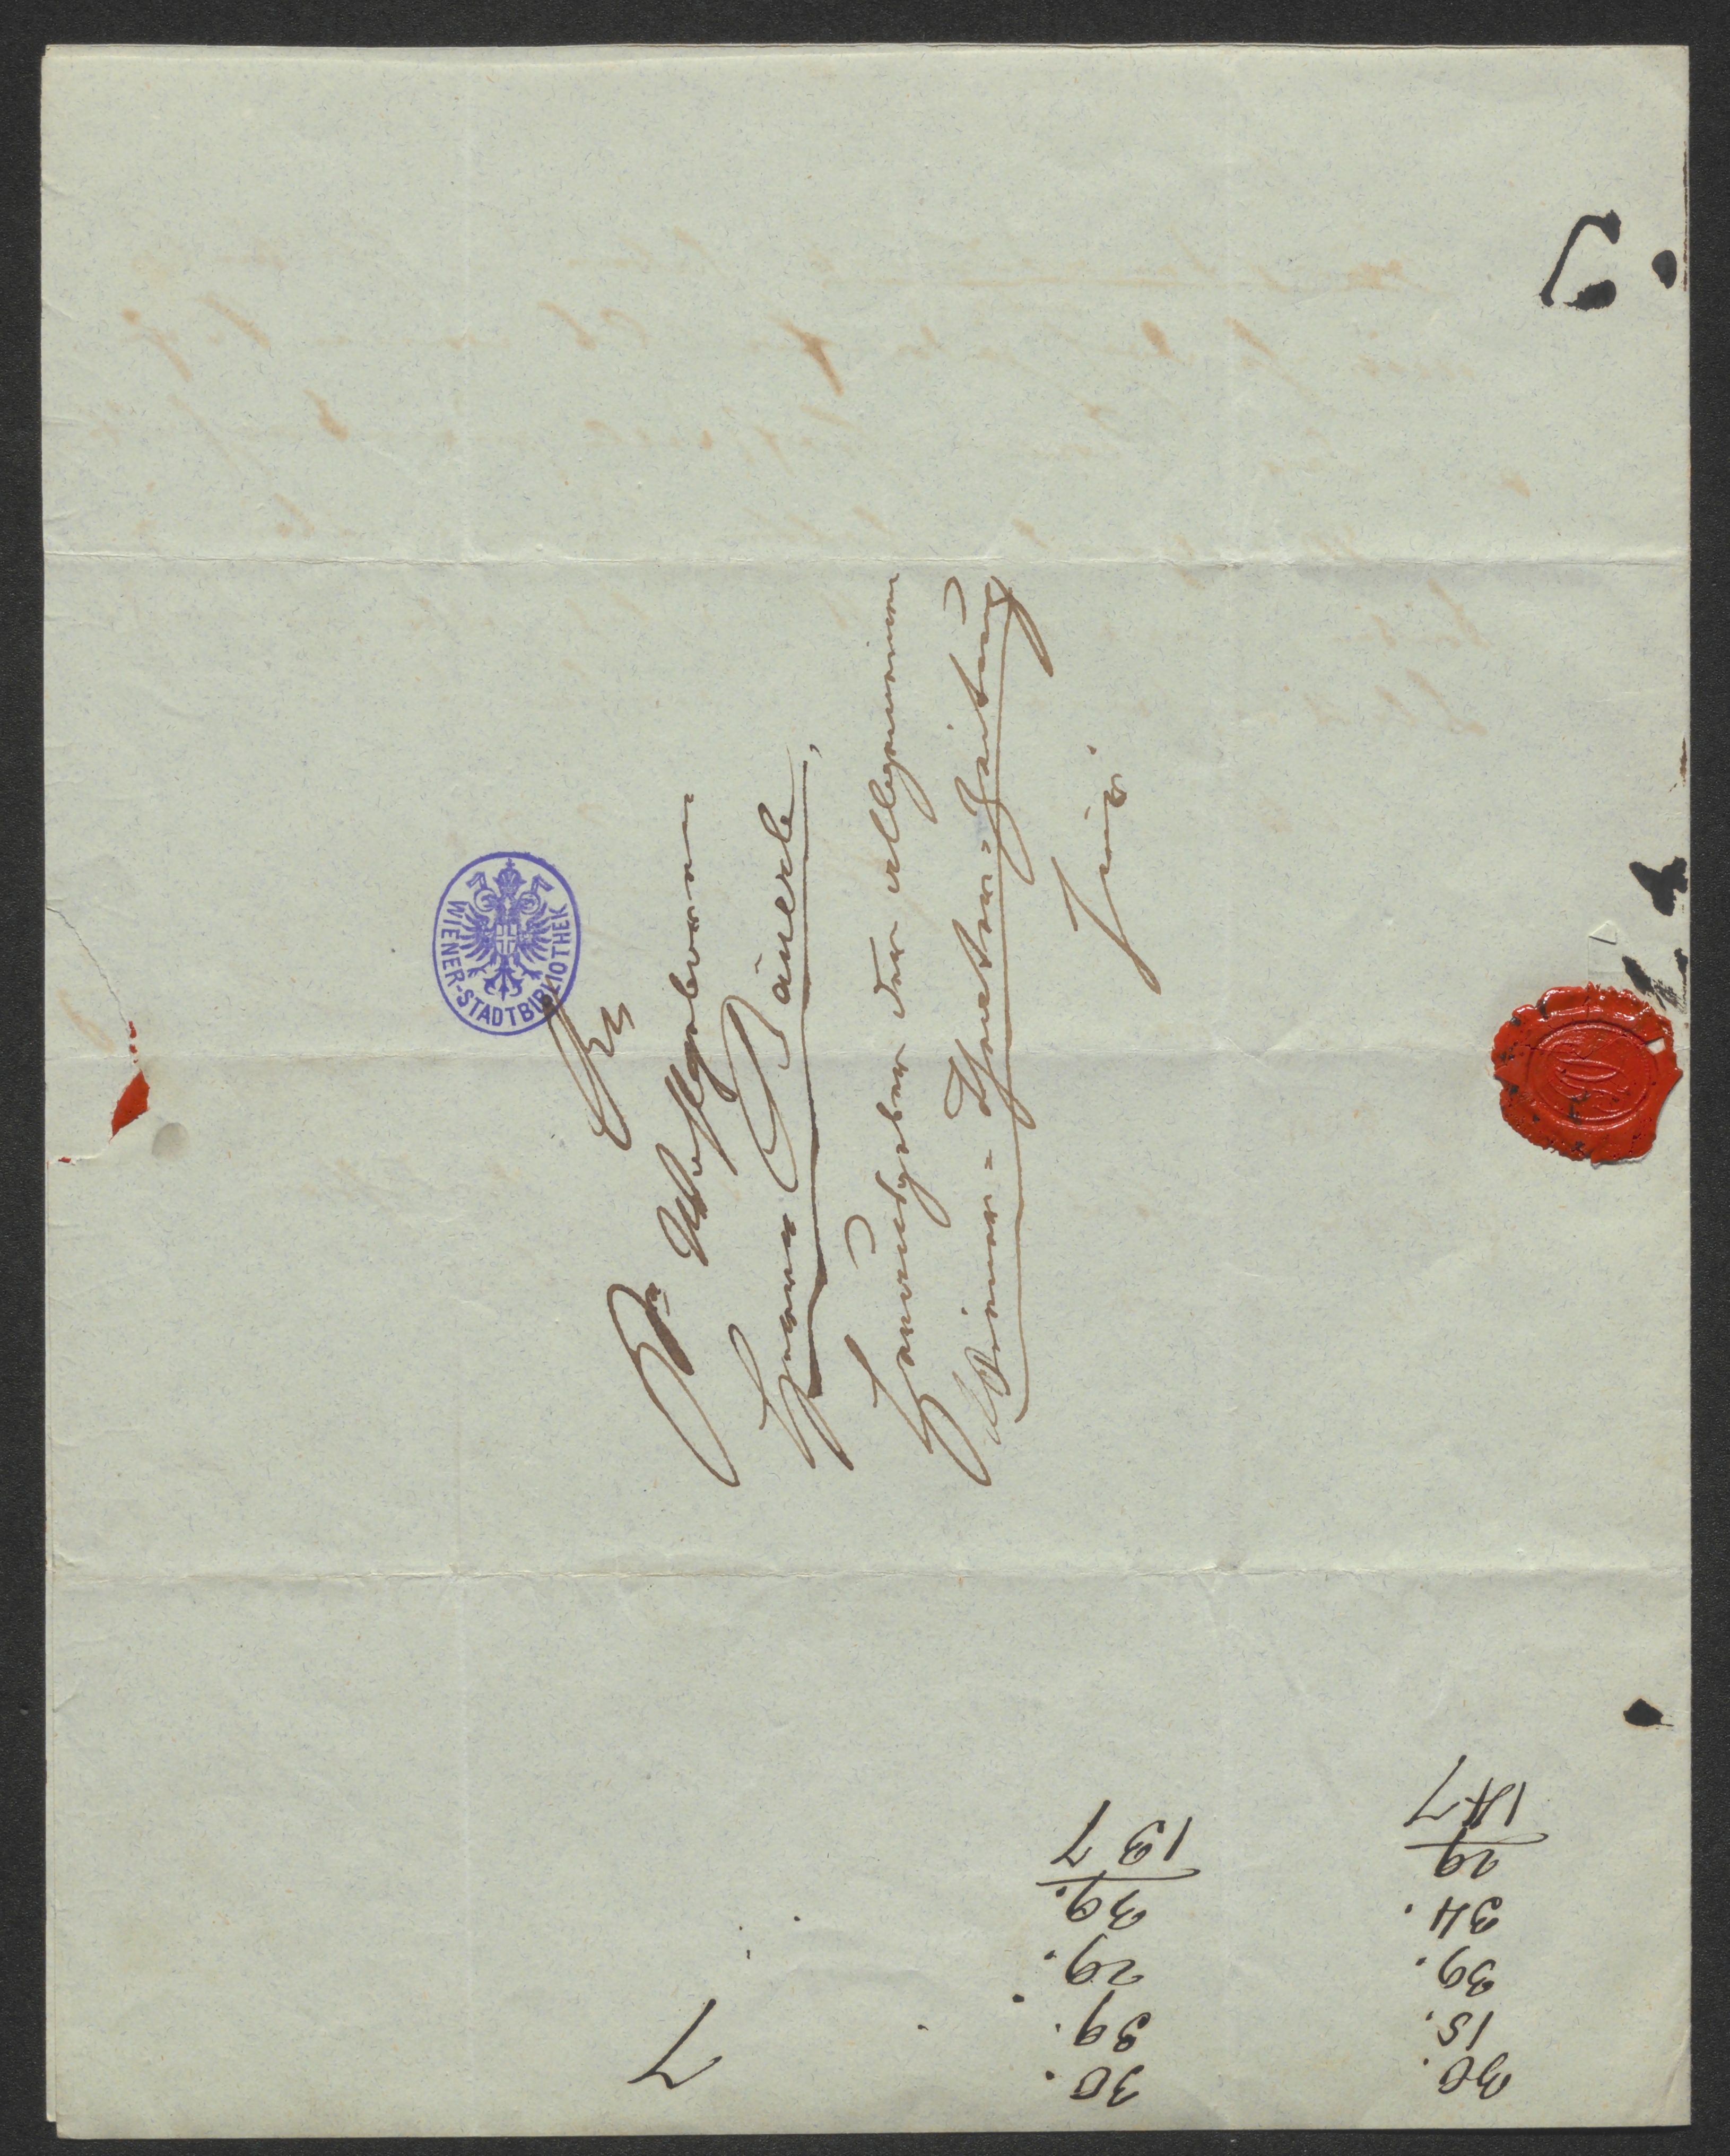 Sr
Wohlgeboren
Herrn Bäuerle,
Herausgeber der allgemeinen
Wiener-Theater-Zeitung
hier.
WIENER-STADTBIBLIOTHEK
30.
15.
39.
34.
29
147
30.
39.
29.
39.
137
7